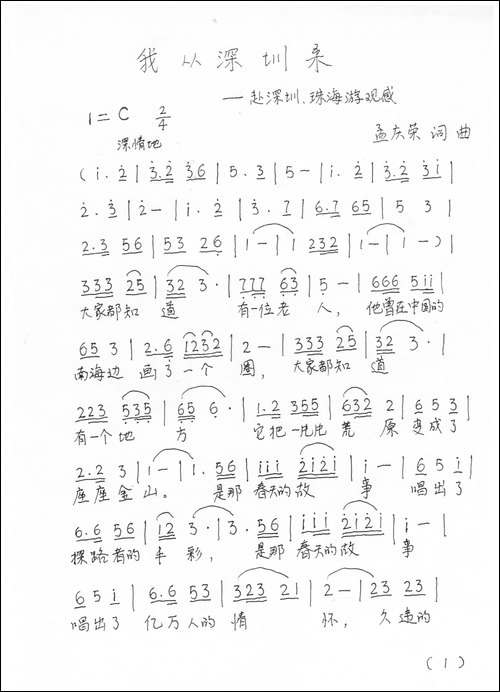 我从深圳来
——赴深圳、珠海游观感
1=C 2/4
孟庆荣 词曲
深情地
(i. 2̇ | 3̇.2̇ 3̇6 | 5.3 | 5- | i. 2̇ | 3̇.2̇ 3̇i |
2̇.3̇ | 2̇- | i. 2̇ | 3̇. 7 | 6.7 65 | 5 3 |
2.3 56 | 53 26̣ | 1- | 1 232 | 1- | 1 -) |
333 25 | 32 3· | 7̣7̣7̣ 6̣3 | 5̣ - | 666 5ii |
大家都知道 有一位老人, 他曾在中国的
65 3 | 2.6̣ 1232 | 2- | 333 25 | 32 3· |
南海边画了一个圈, 大家都知道
223 535 | 6̣5̣ 6̣· | 1.2 355 | 632 2 | 6 5 3 |
有一个地方 它把一片片荒原变成了
2.2 3 | 1- | 1. 56 | iii 2̇i2̇i | i - | 6 5 i |
座座金山。 是那春天的故事 唱出了
6.6 56 | 12 3· | 3. 56 | iii 2̇i2̇i | i - |
探路者的丰彩, 是那春天的故事
6 5 i | 6.6 53 | 323 21 | 2- | 23 23 |
唱出了亿万人的情怀, 久违的
(1)